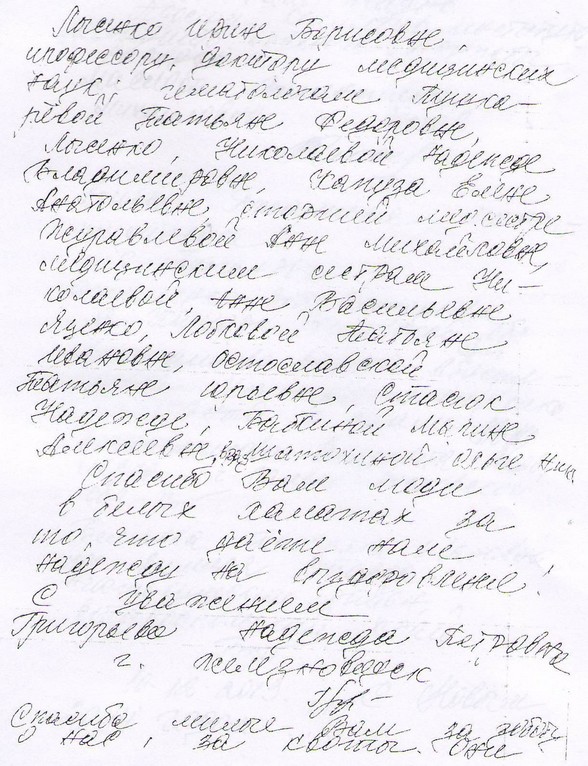 Лысенко Ирине Борисовне,
профессору, доктору медицинских
наук, гематологам Пушка-
рёвой Татьяне Федоровне,
Лысенко, Николаевой Надежде
Владимировне, Капуза Елене
Анатольевне, старшей медсестре
Журавлевой Анне Михайловне,
медицинским сестрам Ни-
колаевой, Анне Васильевне
Яценко, Лобковой Татьяне
Ивановне, Остославской
Татьяне Юрьевне, Стасюк
Надежде, Бабкиной Марине
Алексеевне, Шатохиной Ольге Ник
Спасибо Вам люди
в белых халатах за
то, что даёте нам
надежду на выздоровление!
С уважением
Григорьева Надежда Петровна
г. Железноводск
Спасибо милые Вам за заботу
о нас, за квоты. Они